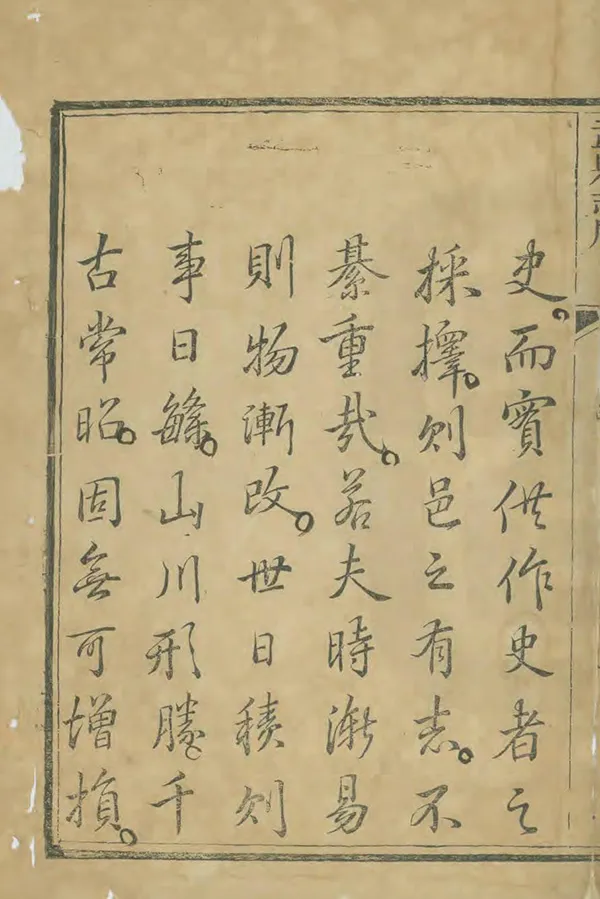 史。而實供作史者之
採擇。則邑之有志。不
綦重哉。若夫時漸易
則物漸改。世日積則
事日緐。山川形勝。千
古常昭。固無可增損。